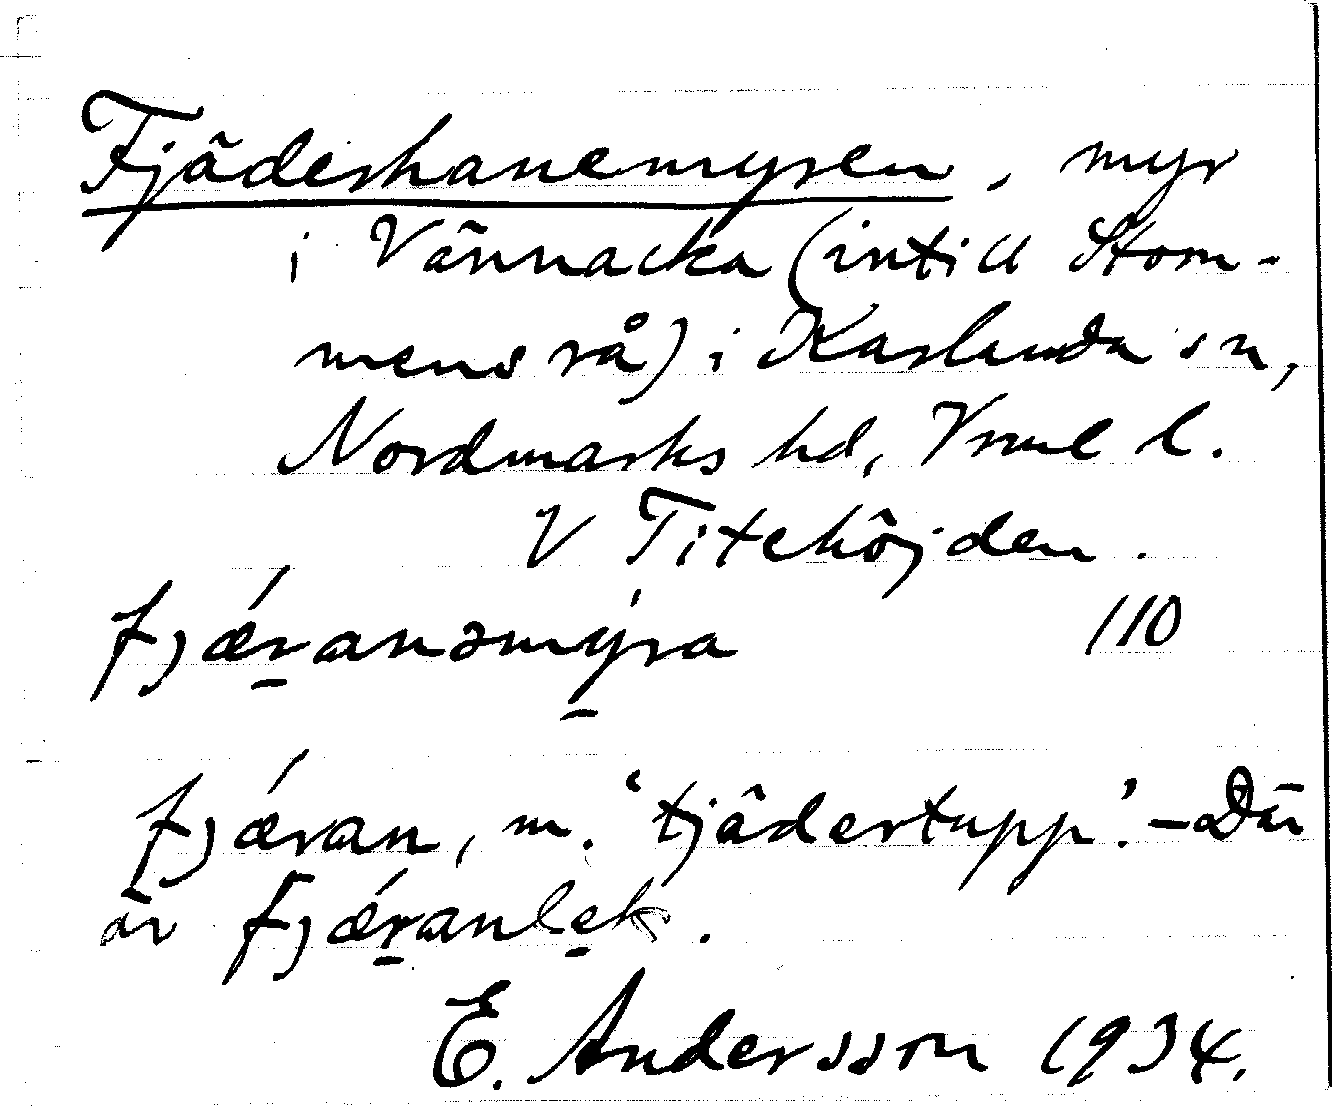 Fjäderhanemyren, myr
i Vännacka (intill Stom-
mens rå) i Karlanda sn,
Nordmarks hd, Vrml l.
V Titehöjden.
fjǽranəmýra 110
fjǽran, m. 'tjädertupp'. – Där
är fjǽranlek.
E. Andersson 1934.